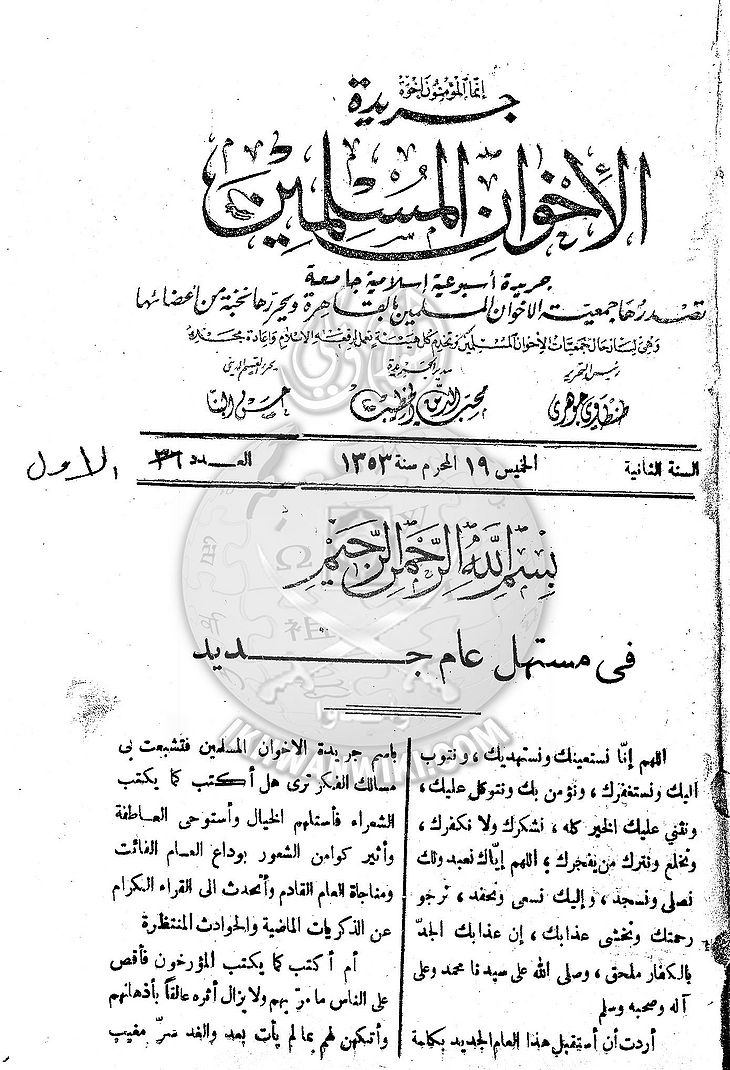 إنما المؤمنون إخوة
جريدة
الإخوان المسلمين
جريدة أسبوعية إسلامية جامعة
تصدرها جمعية الاخوان المسلمين بالقاهرة ويحررها نخبة من أعضائها
وهى لسان حال جمعيات الإخوان المسلمين وتخدم كل هيئة تعمل لرفعة الإسلام وإعادة مجده
رئيس التحرير
طنطاوى جوهرى
مدير الجريدة
محب الدين الخطيب
يحرر القسم الدينى
حسن البنا
السنة الثانية
الخميس ١٩ المحرم سنة ١٣٥٣
العدد ٣٦
الاول
بسم الله الرحمن الرحيم
فى مستهل عام جديد
اللهم إنا نستعينك ونستهديك ، ونتوب
اليك ونستغفرك ، ونؤمن بك ونتوكل عليك ،
ونثني عليك الخير كله ، نشكرك ولا نكفرك ،
ونخلع ونترك من يفجرك ، اللهم إياك نعبد ولك
نصلى ونسجد ، وإليك نسعى ونحفد ، نرجو
رحمتك ونخشى عذابك ، إن عذابك الجدّ
بالكفار ملحق ، وصلى الله على سيدنا محمد وعلى
آله وصحبه وسلم
أردت أن أستقبل هذا العام الجديد بكلمة
باسم جريدة الاخوان المسلمين فتشعبت بى
مسالك الفكر ترى هل أكتب كما يكتب
الشعراء فأستلهم الخيال وأستوحى العاطفة
وأثير كوامن الشعور بوداع العام الفائت
ومناجاة العام القادم وأتحدث الى القراء الكرام
عن الذكريات الماضية والحوادث المنتظرة
أم أكتب كما يكتب المؤرخون فأقص
على الناس ما مرّ بهم ولا يزال أثره عالقاً بأذهانهم
وأتكهن لهم بما لم يأت بعد والغد سرّ مغيب
IKHWANWIKI.COM